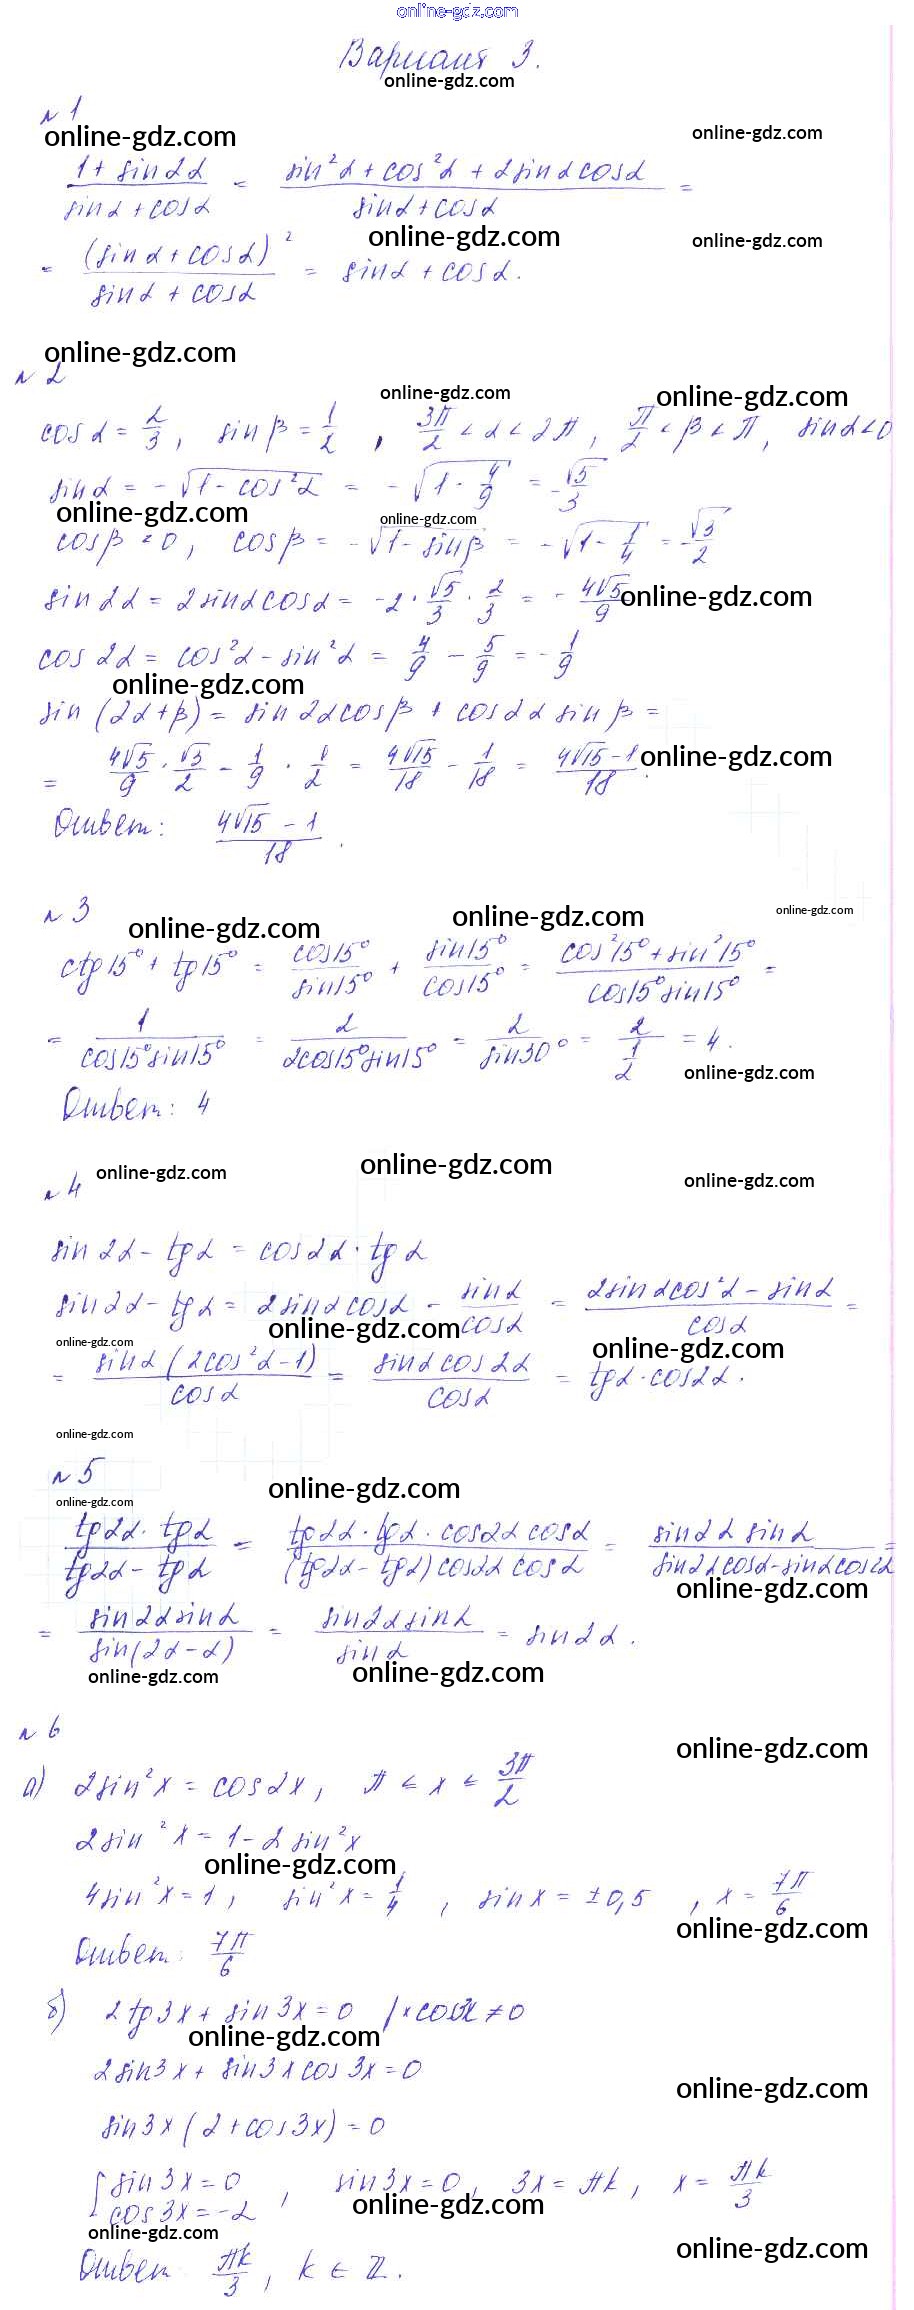 online-gdz.com
Вариант 3.
online-gdz.com
№ 1
online-gdz.com online-gdz.com
(1 + sin2α)/(sinα + cosα) = (sin²α + cos²α + 2sinα cosα)/(sinα + cosα) =
online-gdz.com online-gdz.com
= (sinα + cosα)²/(sinα + cosα) = sinα + cosα.
online-gdz.com
№ 2
online-gdz.com online-gdz.com
cosα = 2/3, sinβ = 1/2, 3π/2 < α < 2π, π/2 < β < π, sinα < 0
sinα = -√(1 - cos²α) = -√(1 · 4/9) = -√5/3
online-gdz.com online-gdz.com
cosβ < 0, cosβ = -√(1 - sinβ) = -√(1 - 1/4) = -√3/2
sin2α = 2sinα cosα = -2 · √5/3 · 2/3 = -4√5/9 online-gdz.com
cos2α = cos²α - sin²α = 4/9 - 5/9 = -1/9
online-gdz.com
sin(2α + β) = sin2α cosβ + cos2α sinβ =
= 4√5/9 · √3/2 - 1/9 · 1/2 = 4√15/18 - 1/18 = (4√15 - 1)/18. online-gdz.com
Ответ: (4√15 - 1)/18.
№ 3
online-gdz.com online-gdz.com online-gdz.com
ctg15° + tg15° = cos15°/sin15° + sin15°/cos15° = (cos²15° + sin²15°)/(cos15° sin15°) =
= 1/(cos15° sin15°) = 2/(2cos15° sin15°) = 2/sin30° = 2/(1/2) = 4.
online-gdz.com
Ответ: 4
online-gdz.com online-gdz.com online-gdz.com
№ 4
sin2α - tgα = cos2α · tgα
sin2α - tgα = 2sinα cosα - sinα/cosα = (2sinα cos²α - sinα)/cosα =
online-gdz.com online-gdz.com online-gdz.com
= sinα(2cos²α - 1)/cosα = sinα cos2α/cosα = tgα · cos2α.
online-gdz.com
№ 5
online-gdz.com online-gdz.com
(tg2α · tgα)/(tg2α - tgα) = (tg2α · tgα · cos2α cosα)/((tg2α - tgα)cos2α cosα) = (sin2α sinα)/(sin2α cosα - sinα cos2α) =
online-gdz.com
= (sin2α sinα)/(sin(2α - α)) = (sin2α sinα)/(sinα) = sin2α.
online-gdz.com online-gdz.com
№ 6
online-gdz.com
а) 2sin²x = cos2x, π < x < 3π/2
2sin²x = 1 - 2sin²x
online-gdz.com
4sin²x = 1, sin²x = 1/4, sinx = ±0,5, x = 7π/6
online-gdz.com
Ответ: 7π/6
б) 2tg3x + sin3x = 0 /×cos3x ≠ 0
online-gdz.com
2sin3x + sin3x cos3x = 0
online-gdz.com
sin3x(2 + cos3x) = 0
[sin3x = 0, sin3x = 0, 3x = πk, x = πk/3
cos3x = -2
online-gdz.com
online-gdz.com online-gdz.com
Ответ: πk/3, k ∈ Z.